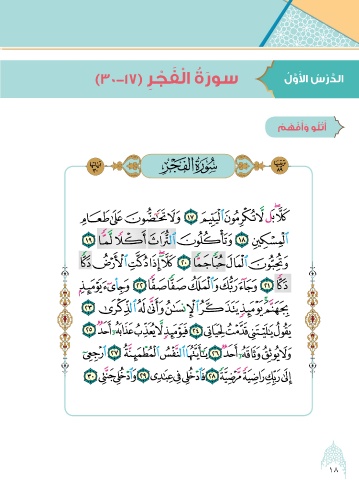 الدَّرْسُ الأَوَّلُ
سورَةُ الْفَجْرِ (١٧-٣٠)
أَتْلو وَأَفْهَمُ
سُورَةُ الفَجْرِ
كَلَّا بَل لَّا تُكْرِمُونَ الْيَتِيمَ ١٧ وَلَا تَحَاضُّونَ عَلَىٰ طَعَامِ
الْمِسْكِينِ ١٨ وَتَأْكُلُونَ التُّرَاثَ أَكْلًا لَّمًّا ١٩
وَتُحِبُّونَ الْمَالَ حُبًّا جَمًّا ٢٠ كَلَّا إِذَا دُكَّتِ الْأَرْضُ دَكًّا
دَكًّا ٢١ وَجَاءَ رَبُّكَ وَالْمَلَكُ صَفًّا صَفًّا ٢٢ وَجِايءَ يَوْمَئِذٍ
بِجَهَنَّمَ يَوْمَئِذٍ يَتَذَكَّرُ الْإِنسَٰنُ وَأَنَّىٰ لَهُ الذِّكْرَىٰ ٢٣
يَقُولُ يَٰلَيْتَنِي قَدَّمْتُ لِحَيَاتِي ٢٤ فَيَوْمَئِذٍ لَّا يُعَذِّبُ عَذَابَهُ أَحَدٌ ٢٥
وَلَا يُوثِقُ وَثَاقَهُ أَحَدٌ ٢٦ يَٰأَيَّتُهَا النَّفْسُ الْمُطْمَئِنَّةُ ٢٧ ارْجِعِي
إِلَىٰ رَبِّكِ رَاضِيَةً مَّرْضِيَّةً ٢٨ فَادْخُلِي فِي عِبَٰدِي ٢٩ وَادْخُلِي جَنَّتِي ٣٠
١٨